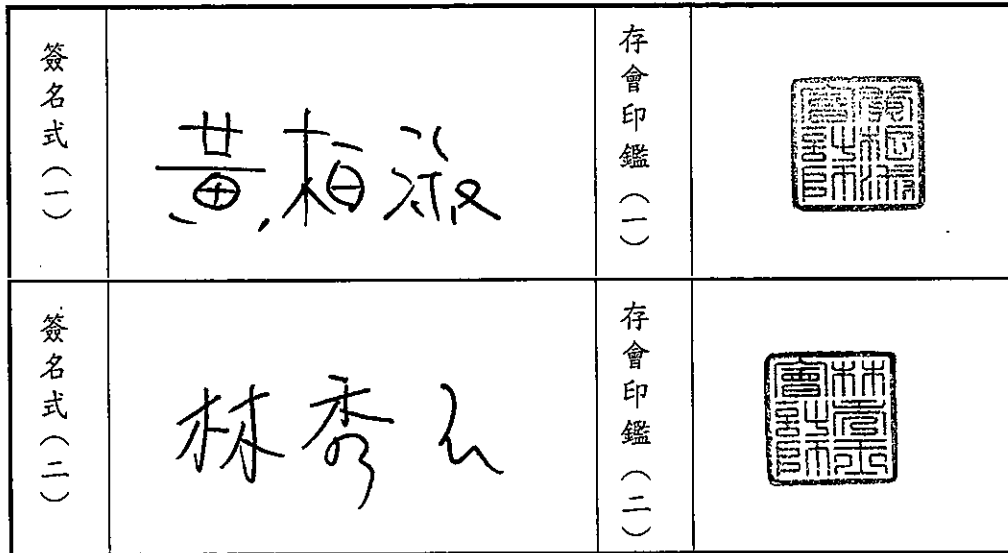 簽名式(一)
黃柏淑
存會印鑑(一)
簽名式(二)
林秀玉
存會印鑑(二)
林秀玉會計師